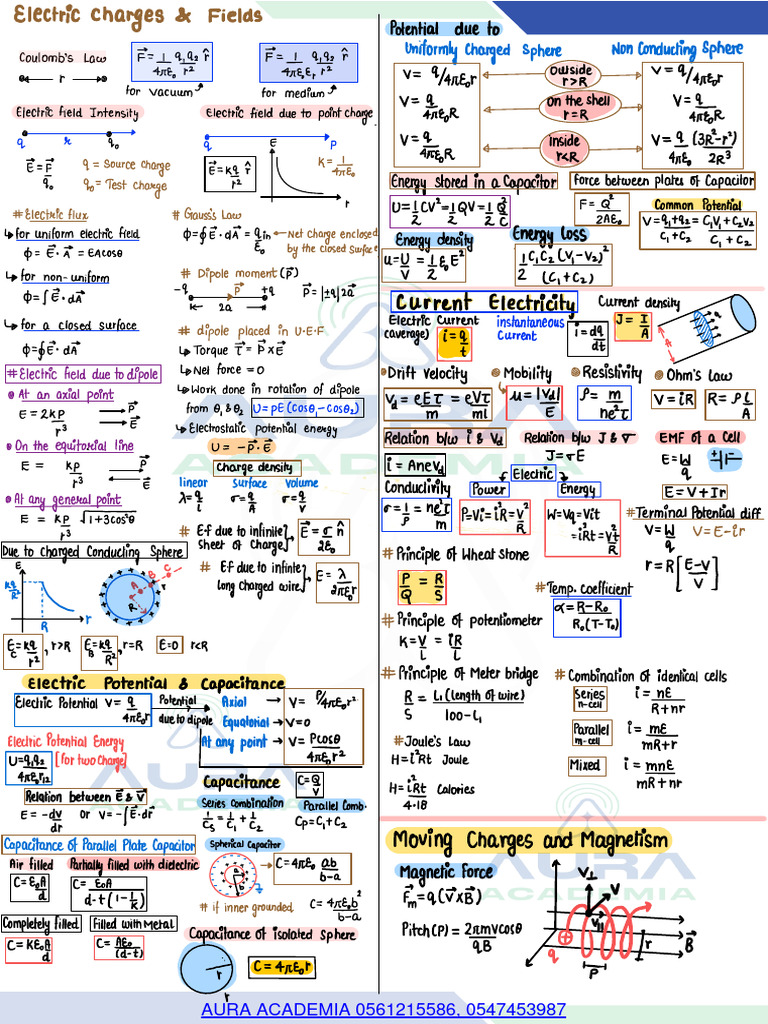 Electric Charges & Fields
Coulomb's Law
r
F⃗ = 1/4πε₀ q₁q₂/r² r̂
for vacuum
F⃗ = 1/4πε₀εr q₁q₂/r² r̂
for medium
Electric field Intensity
q r q₀
E⃗ = F⃗/q₀
q = Source charge
q₀ = Test charge
Electric field due to point charge
q P
E⃗ = kq/r² r̂
E
r
K = 1/4πε₀
# Electric flux
for uniform electric field
ϕ = E⃗ · A⃗ = EAcosθ
for non-uniform
ϕ = ∫E⃗ · dA⃗
for a closed surface
ϕ = ∮E⃗ · dA⃗
# Gauss's Law
ϕ = ∮E⃗ · dA⃗ = qin/ε₀
Net charge enclosed
by the closed Surface
# Dipole moment (P⃗)
-q P⃗ +q
2a
P⃗ = |±q|2a⃗
# dipole placed in U.E.F
Torque τ⃗ = P⃗ × E⃗
Net force = 0
Work done in rotation of dipole
from θ₁ & θ₂ U = PE (Cosθ₁ - Cosθ₂)
Electrostatic Potential energy
U = -P⃗ · E⃗
# Electric field due to dipole
At an axial point
E = 2KP/r³
P⃗
E⃗
On the equitorial line
E = KP/r³
P⃗
E⃗
At any general point
E = KP/r³ √1+3cos²θ
Charge density
linear Surface volume
λ = q/l σ = q/A σ = q/V
# E.f due to infinite
Sheet of Charge
E⃗ = σ/2ε₀ n̂
# E.f due to infinite
long charged wire
E = λ/2πε₀r
Due to Charged Conducting Sphere
E
kq/R²
R r
A B C
R
E_C = kq/r², r>R E_B = kq/R², r=R E=0 r<R
Electric Potential & Capacitance
Electric Potential V = q/4πε₀r
Potential
due to dipole
Axial V = P/4πε₀r²
Equatorial V = 0
At any point V = Pcosθ/4πε₀r²
Electric Potential Energy
U = q₁q₂/4πε₀r₁₂
(for two Charge)
Relation between E⃗ & V⃗
E = -dv/dr or V = -∫E⃗·dr⃗
Capacitance C = Q/V
Series Combination
1/Cs = 1/C₁ + 1/C₂
Parallel Comb.
Cp = C₁ + C₂
Capacitance of Parallel Plate Capacitor
Air filled
C = ε₀A/d
Partially filled with dielectric
C = ε₀A/d-t(1-1/K)
Completely filled
C = Kε₀A/d
Filled with Metal
C = Aε₀/(d-t)
Spherical Capacitor
C = 4πε₀ ab/b-a
# if inner grounded C = 4πε₀b²/b-a
Capacitance of isolated Sphere
r
C = 4πε₀r
Potential due to
Uniformly Charged Sphere
Non Conducting Sphere
V = q/4πε₀r
Outside
r>R
V = q/4πε₀r
V = q/4πε₀R
On the shell
r=R
V = q/4πε₀R
V = q/4πε₀R
Inside
r<R
V = q/4πε₀ (3R²-r²)/2R³
Energy stored in a Capacitor
U = 1/2 CV² = 1/2 QV = 1/2 Q²/C
Force between plates of Capacitor
F = Q²/2Aε₀
Common Potential
V = q₁+q₂/C₁+C₂ = C₁V₁+C₂V₂/C₁+C₂
Energy density
u = U/V = 1/2 ε₀E²
Energy loss
1/2 C₁C₂ (V₁-V₂)²/(C₁+C₂)
Current Electricity
Electric Current
(average)
i = q/t
instantaneous
Current
i = dq/dt
Current density
J = I/A
A
Drift Velocity
Vd = eEτ/m = eVτ/ml
Mobility
μ = |Vd|/E
Resistivity
ρ = m/ne²τ
Ohm's Law
V = iR R = ρl/A
Relation b/w i & Vd
i = AneVd
Relation b/w J & σ
J = σE
EMF of a Cell
E = W/q
E = V + Ir
Conductivity
σ = 1/ρ = ne²τ/m
Electric
Power
P = Vi = i²R = V²/R
Energy
W = Vq = Vit
= i²Rt = V²t/R
# Terminal Potential diff
V = W/q V = E-ir
r = R [E-V/V]
# Principle of Wheat stone
P/Q = R/S
# Temp. coefficient
α = R-R₀/R₀(T-T₀)
# Principle of potentiometer
K = V/L = iR/L
# Principle of Meter bridge
R/S = L₁ (length of wire)/100-L₁
# Combination of identical cells
Series
n-cell
i = nE/R+nr
Parallel
m-cell
i = mE/mR+r
Mixed
i = mnE/mR+nr
# Joule's Law
H = i²Rt Joule
H = i²Rt/4·18 Calories
Moving Charges and Magnetism
Magnetic Force
F⃗m = q(V⃗×B⃗)
Pitch(P) = 2πmvcosθ/qB
V⊥
V
V||
q
P
r
B⃗
AURA
ACADEMIA
AURA ACADEMIA 0561215586, 0547453987